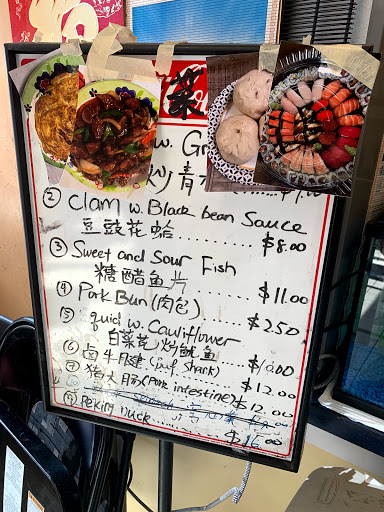 菜
w. Gr
炒青
$7.00
② Clam w. Black bean Sauce
豆豉花蛤 ........ $8.00
③ Sweet and Sour Fish
糖醋鱼片 ....... $11.00
④ Pork Bun (肉包) ........ $2.50
⑤ squid w. Cauliflower
白菜花炒鱿鱼 ... $10.00
⑥ 卤牛腱 (beef shank) ..... $12.00
⑦ 猪大肠 (Pork intestine) $12.00
⑨ Peking Duck